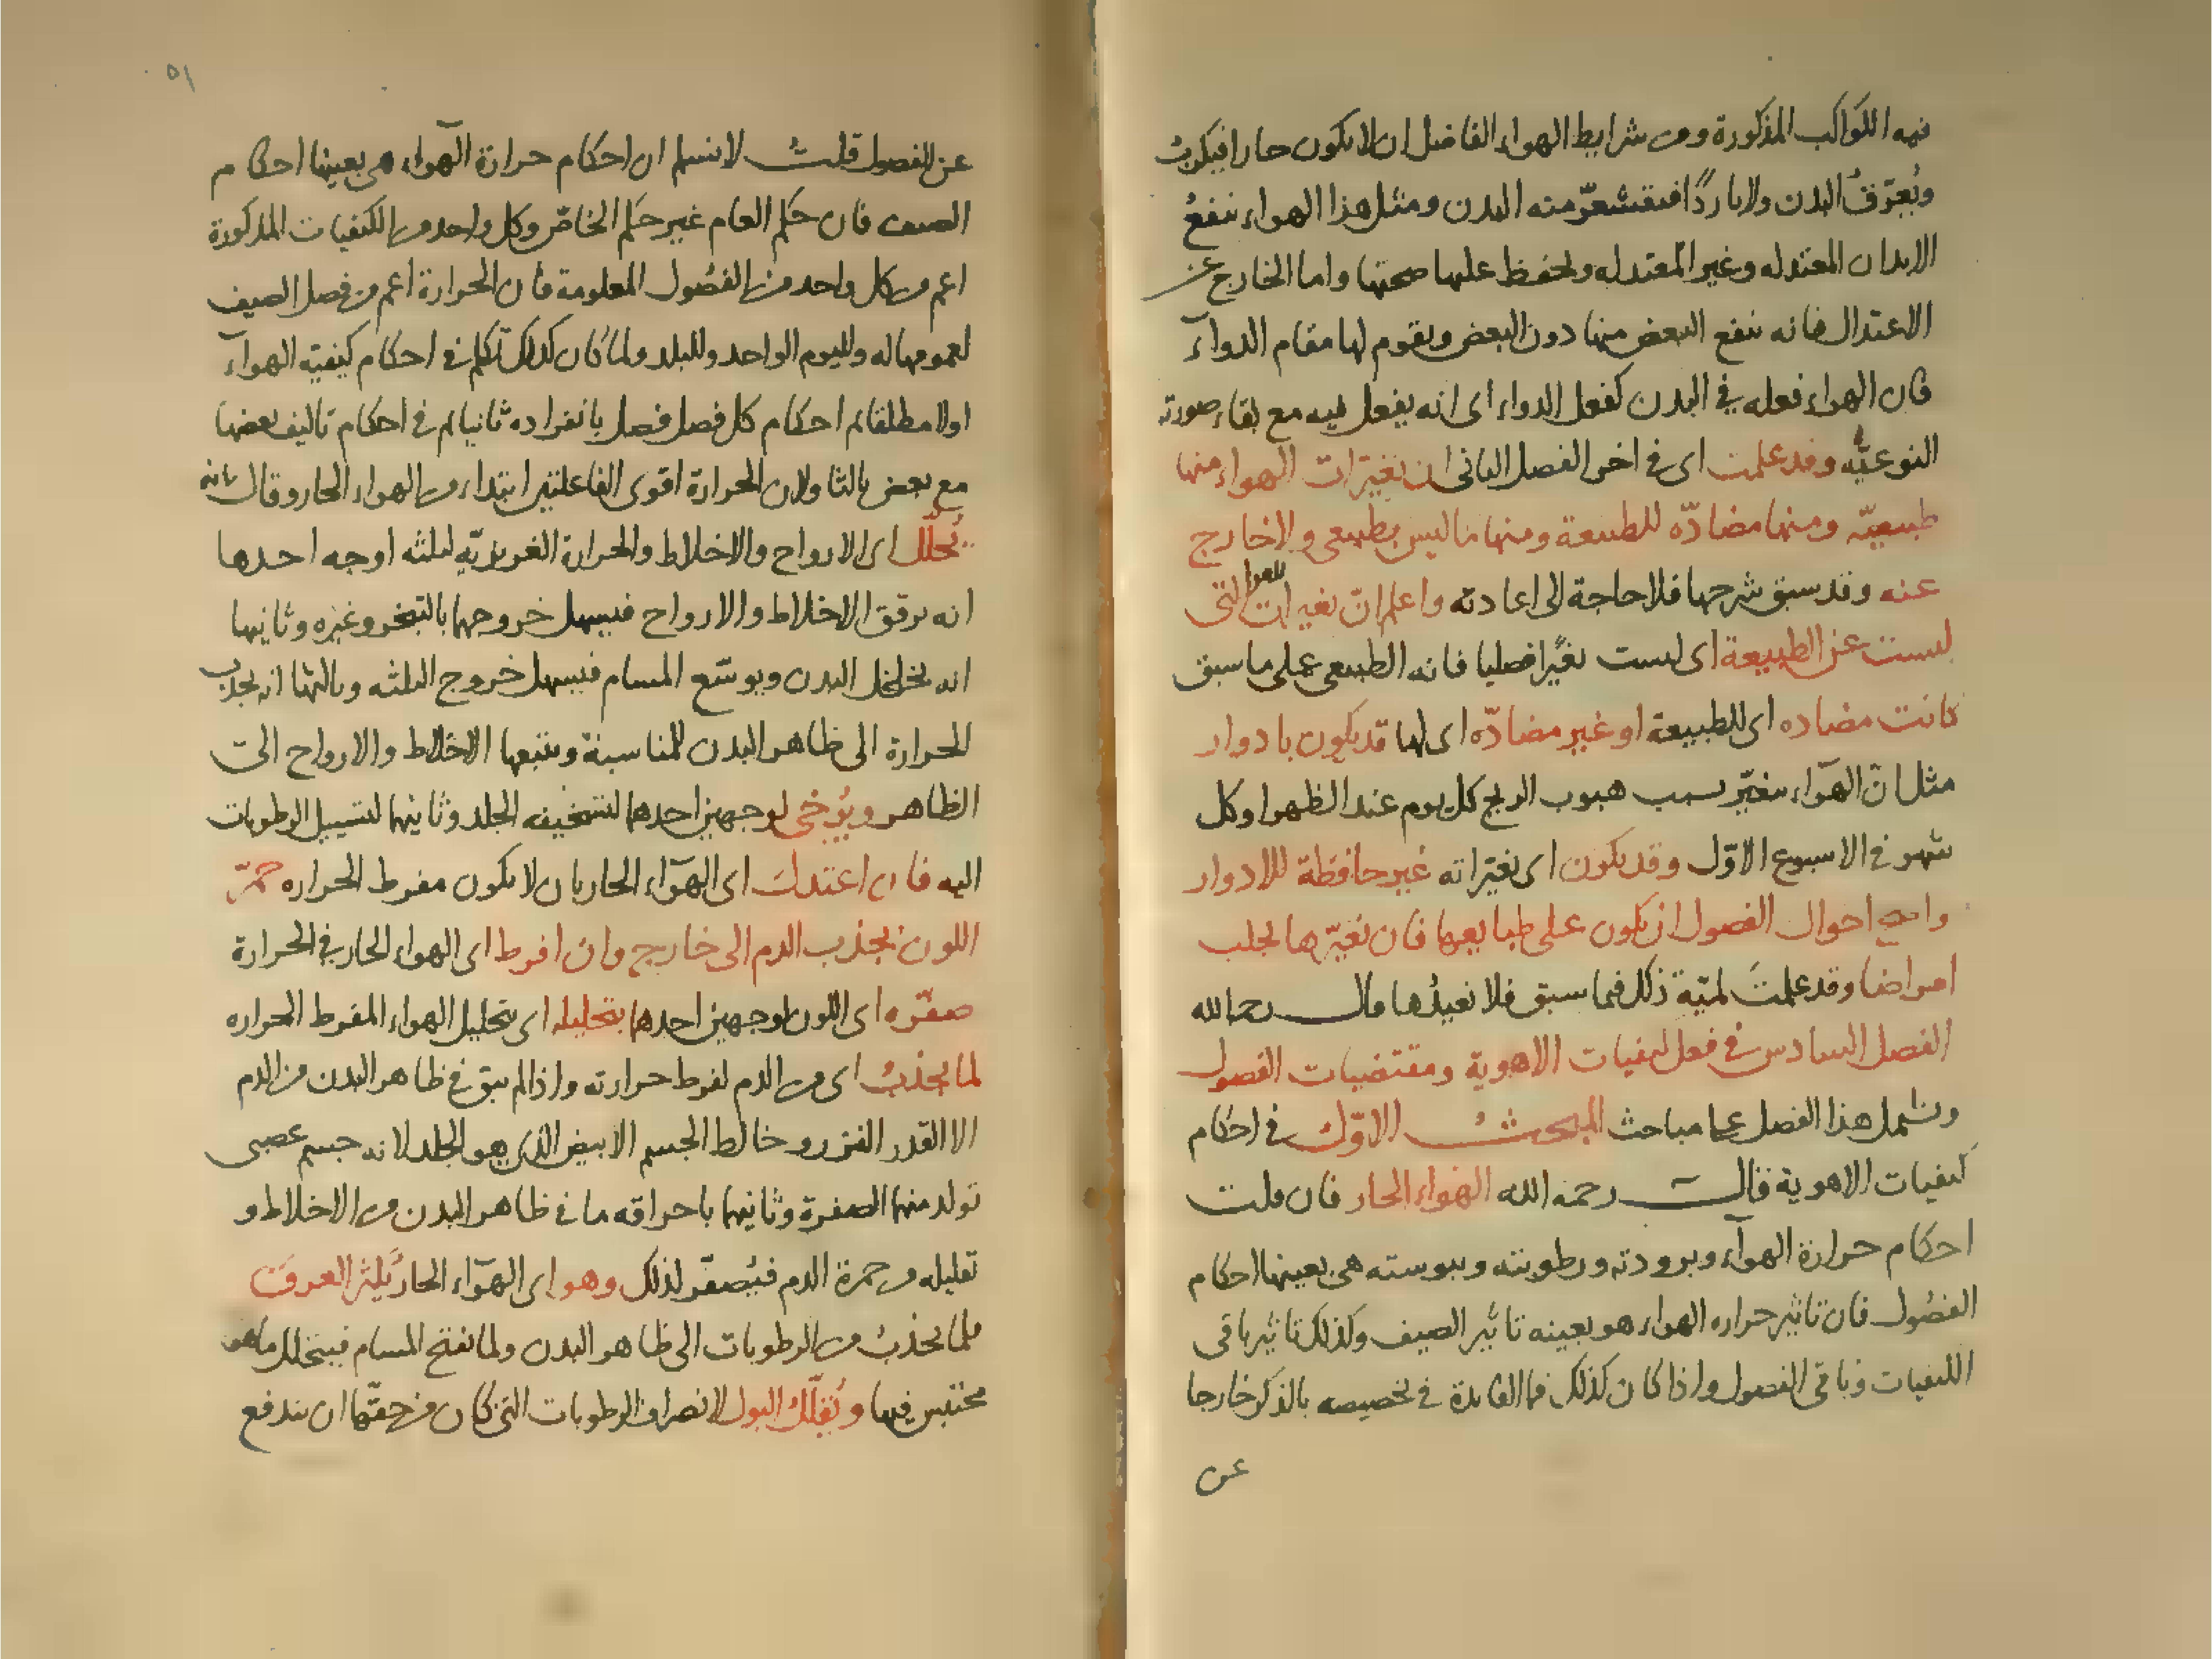 فيه الكواكب المذكورة ومن شرايط الهواء الفاضل ان لا يكون حارا فيكرب
ويعرّق البدن ولا باردًا فيقشعرّ منه البدن ومثل هذا الهواء ينفع
الابدان المعتدله وغير المعتدله ويحفظ عليها صحتها واما الخارج عن
الاعتدال فانه ينفع البعض منها دون البعض ويقوم لها مقام الدوآء
فان الهواء فعله في البدن كفعل الدواء أى انه يفعل فيه مع بقاء صورته
النوعيّه وقد علمت اى في اخر الفصل الثانى ان تغيّرات الهواء منها
طبيعيّه ومنها مضادّه للطبيعة ومنها ما ليس بطبيعى ولا خارج
عنه وقد سبق شرحها فلا حاجة الى اعادته واعلم انّ تغيرات الهوا التى
ليست عن الطبيعة اى ليست تغيّرا فصليا فانه الطبيعى على ما سبق
كانت مضاده اى للطبيعة او غير مضادّه اى لها قد يكون بادوار
مثل انّ الهوآء يتغيّر بسبب هبوب الريح كل يوم عند الظهر او كل
شهر في الاسبوع الاوّل وقد يكون اى تغيّراته غير حافظة للادوار
واصح احوال الفصول ان يكون على طبايعها فان تغيّرها يجلب
امراضا وقد علمتَ لميّة ذلك فيما سبق فلا نعيدُها قال رحمه الله
الفصل السادس في فعل كيفيات الاهوية ومقتضيات الفصول
ويشمل هذا الفصل على مباحث المبحث الاوّل في احكام
كيفيات الاهوية قال رحمه الله الهواء الحار فان قلت
احكام حرارة الهوآء وبرودته ورطوبته ويبوسته هى بعينها احكام
الفصُول فان تاثير حراره الهواء هو بعينه تاثير الصيف وكذلك تاثير باقى
الكيفيات وباقى الفصول واذا كان كذلك فما الفايدة في تخصيصه بالذكر خارجا
عن
٥١
عن الفصول قلت لا نسلم ان احكام حرارة الهوآء هى بعينها احكام
الصيف فان حكم العام غير حكم الخاصّ وكل واحد من الكيفيات المذكورة
اعم من كل واحد من الفصُول المعلومة فان الحرارة اعم من فصل الصيف
لعمومها له ولليوم الواحد وللبلد ولما كان كذلك تكلم في احكام كيفيّه الهوآء
اولا مطلقا ثم احكام كل فصل فصل بانفراده ثانيا ثم في احكام تاليف بعضها
مع بعض ثالثا ولان الحرارة اقوى الفاعلتين ابتداء من الهواء الحار وقال بانه
يُحلّل اى الارواح والاخلاط والحرارة الغريزيّه لثلثه اوجه احدها
انه يرقق الاخلاط والارواح فيسهل خروجها بالتبخر وغيره وثانيها
انه يخلخل البدن ويوسّع المسام فيسهل خروج الثلثه وثالثها انه يجذب
الحرارة الى ظاهر البدن للمناسبة ويتبعها الاخلاط والارواح الى
الظاهر ويُرخى لوجهين احدها لتسخينه الجلد وثانيها لتسييل الرطوبات
اليه فان اعتدل اى الهوآء الحار بان لا يكون مفرط الحراره حمّر
اللون بجذب الدم الى خارج وان افرط اى الهواء الحار في الحرارة
صفّره اى اللون لوجهين احدها بتحليله اى بتحليل الهواء المفرط الحراره
لما يجذبُ اى من الدم لفرط حرارته واذا لم يبق في ظاهر البدن من الدم
الا القدر النزر وخالط الجسم الابيض الذى هو الجلد لانه جسم عصبى
تولد منها الصفرة وثانيها باحراقه ما في ظاهر البدن من الاخلاط و
تقليله من حمرة الدم فيُصفّر لذلك وهو اى الهوآء الحار يُكثر العرق
فلما يجذبُ من الرطوبات الى ظاهر البدن ولما يفتح المسام فيتحلل ما هو
محتبس فيها ويُقلّل البول لانصراف الرطوبات التى كان من حقّها ان يندفع